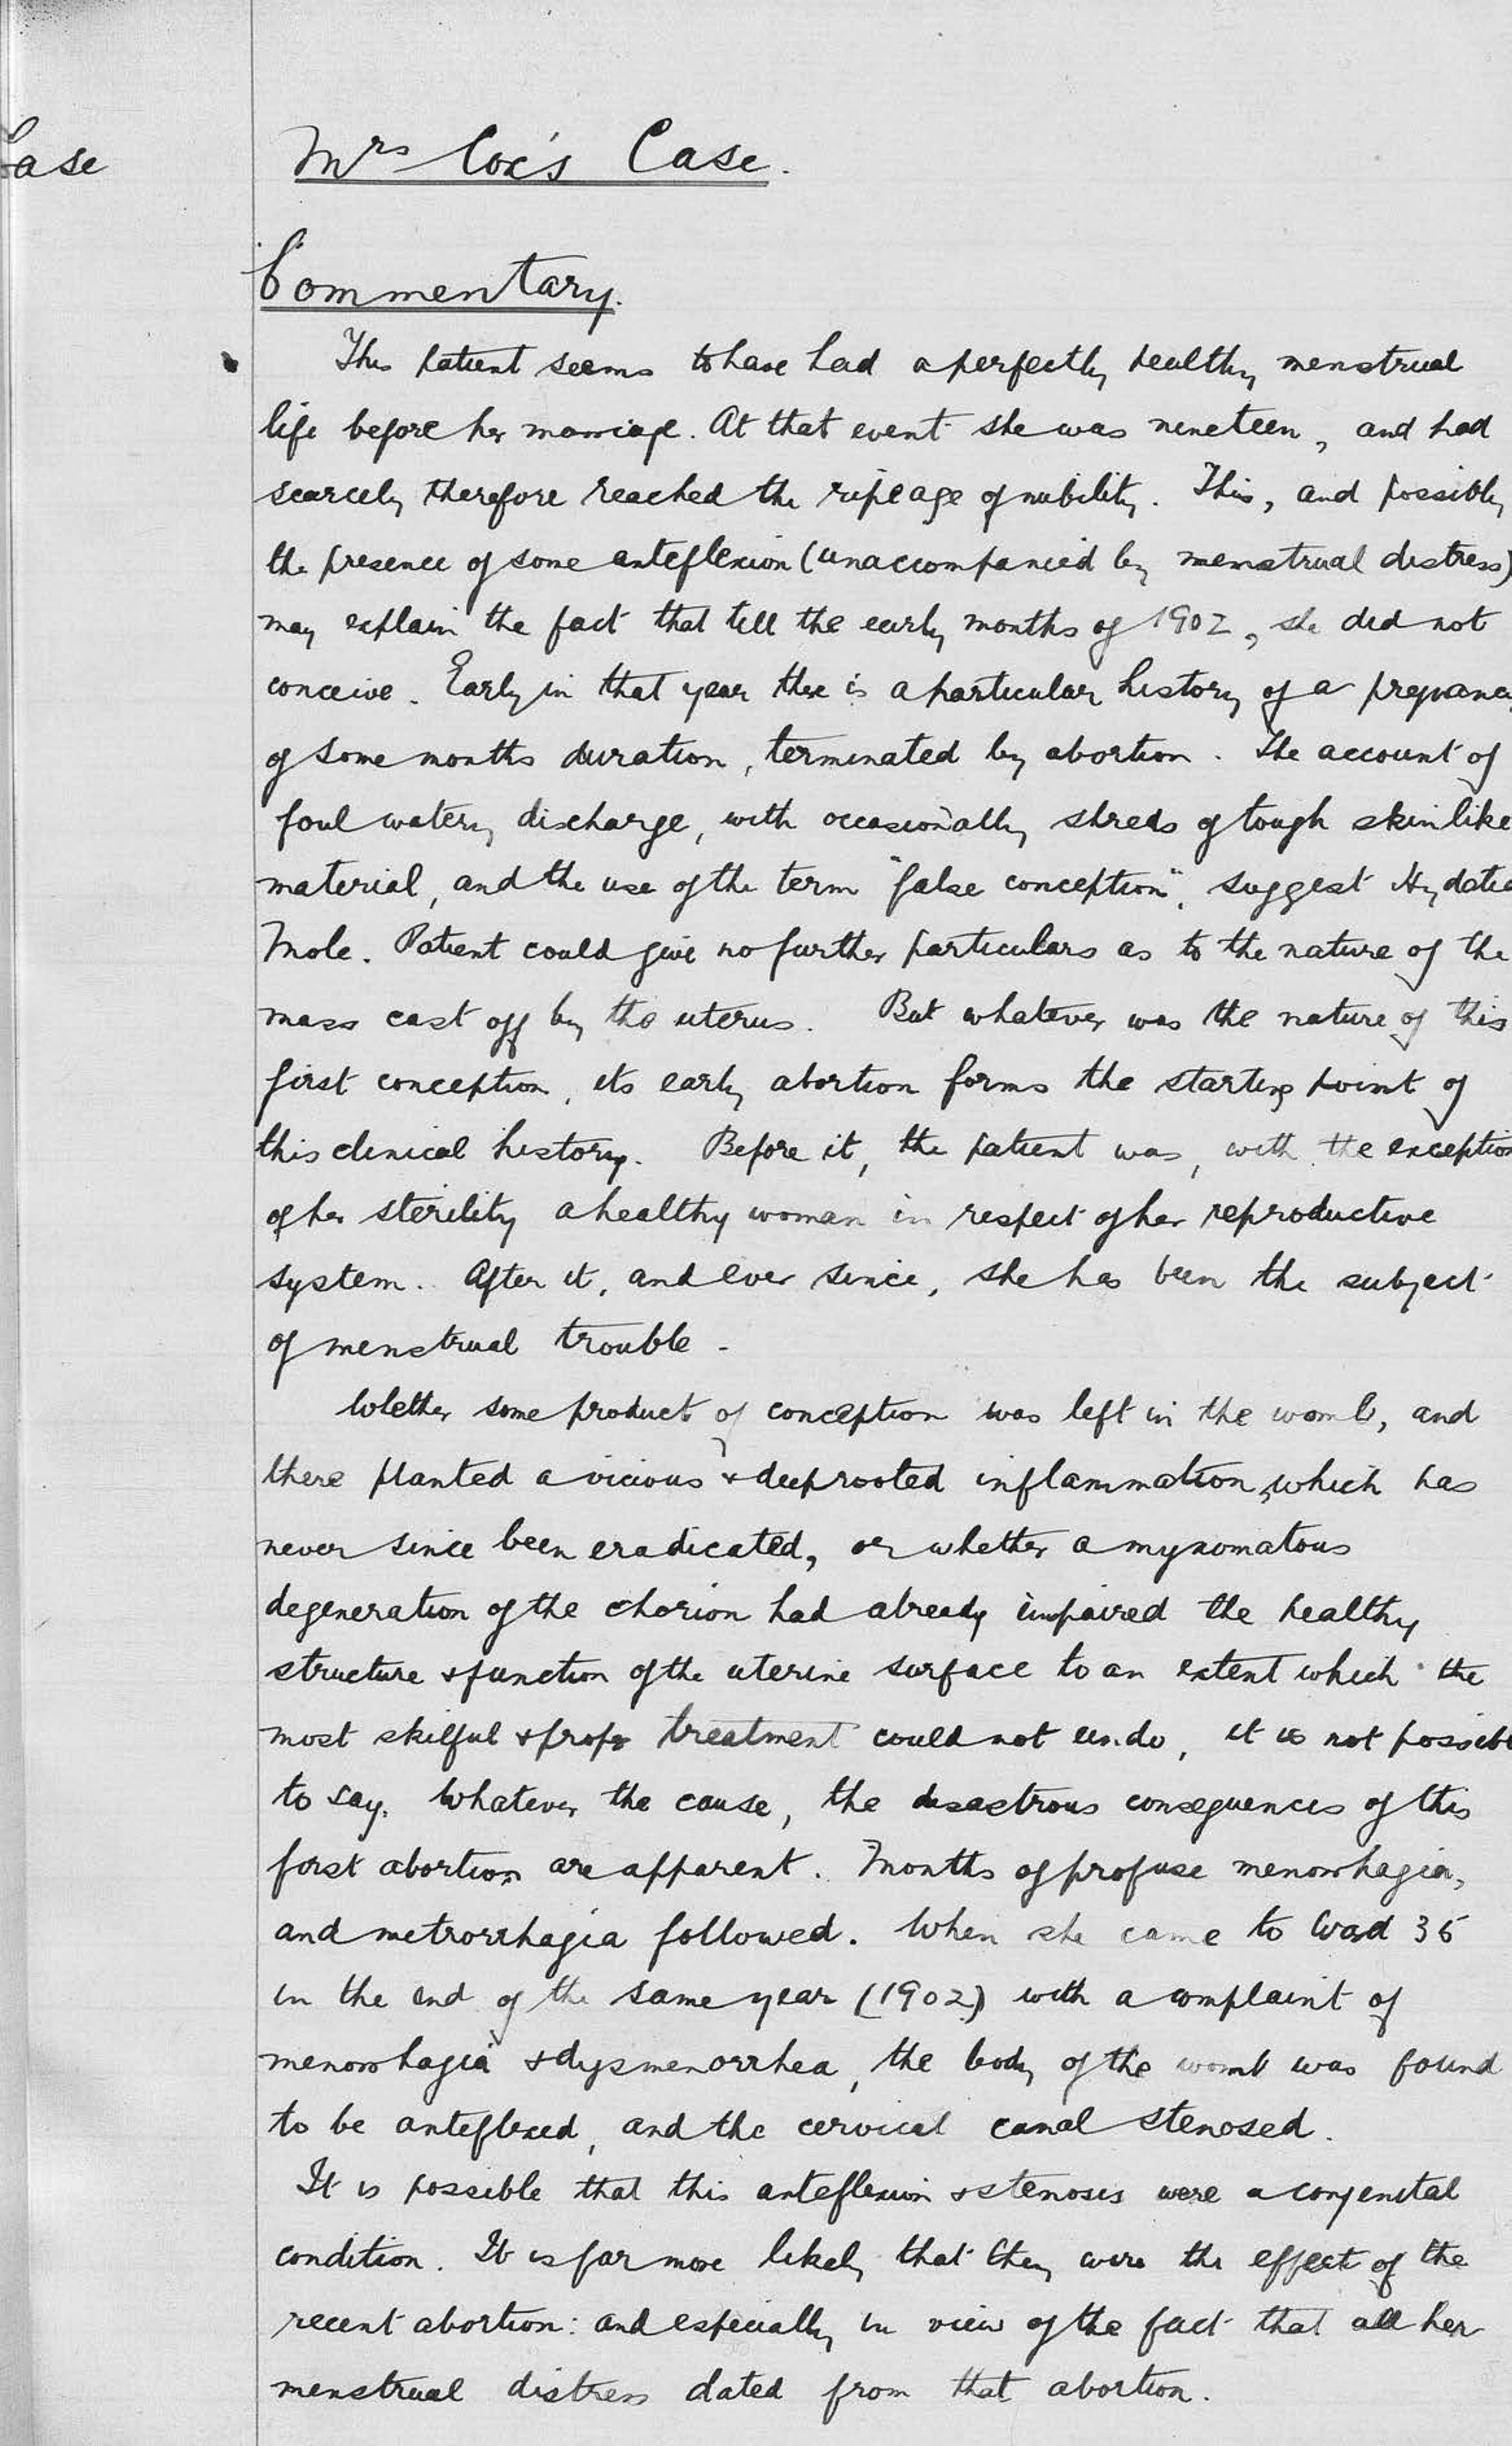 Case
Mrs Cox's Case.
Commentary.
This patient seems to have had a perfectly healthy menstrual
life before her marriage. At that event she was nineteen, and had
scarcely therefore reached the ripe age of nubility. This, and possibly
the presence of some anteflexion (unaccompanied by menstrual distress)
may explain the fact that till the early months of 1902, she did not
conceive. Early in that year there is a particular history of a pregnancy
of some months duration, terminated by abortion. The account of
foul watery discharge, with occasionally shreds of tough skinlike
material, and the use of the term "false conception", suggest Hydatid
Mole. Patient could give no further particulars as to the nature of the
mass cast off by the uterus. But whatever was the nature of this
first conception, its early abortion forms the starting point of
this clinical history. Before it, the patient was, with the exception
of her sterility a healthy woman in respect of her reproductive
system. After it, and ever since, she has been the subject
of menstrual trouble -
Whether some product of conception was left in the womb, and
there planted a vicious & deeprooted inflammation, which has
never since been eradicated, or whether a myxomatous
degeneration of the chorion had already impaired the healthy
structure & function of the uterine surface to an extent which the
most skilful & proper treatment could not undo, it is not possible
to say. Whatever the cause, the disastrous consequences of this
first abortion are apparent. Months of profuse menorrhagia,
and metrorrhagia followed. When she came to Ward 36
in the end of the same year (1902) with a complaint of
menorrhagia & dysmenorrhea, the body of the womb was found
to be anteflexed, and the cervical canal stenosed.
It is possible that this anteflexion & stenosis were a congenital
condition. It is far more likely that they were the effect of the
recent abortion: and especially in view of the fact that all her
menstrual distress dated from that abortion.